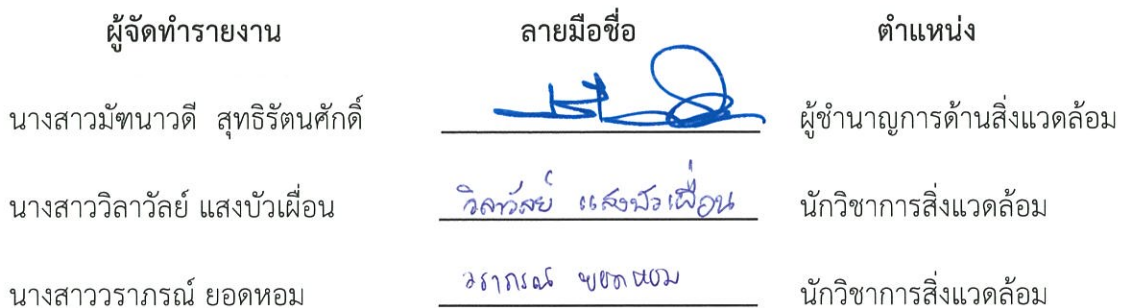 ผู้จัดทำรายงาน ลายมือชื่อ ตำแหน่ง
นางสาวมัฑนาวดี สุทธิรัตนศักดิ์ ผู้ชำนาญการด้านสิ่งแวดล้อม
นางสาววิลาวัลย์ แสงบัวเผื่อน วิลาวัลย์ แสงบัวเผื่อน นักวิชาการสิ่งแวดล้อม
นางสาววราภรณ์ ยอดหอม วราภรณ์ ยอดหอม นักวิชาการสิ่งแวดล้อม